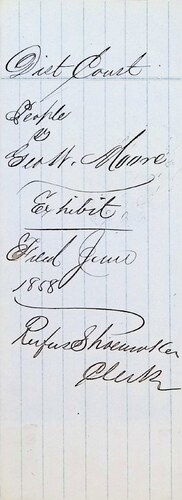 Dist Court
People
v
Geo W. Moore
Exhibit
Filed June
1858
Rufus Shoemaker
Clerk